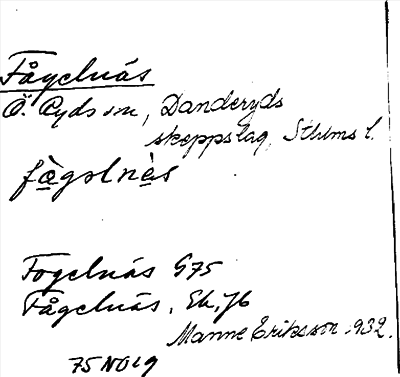 Fågelnäs
Ö. Ryds sn, Danderyds
skeppslag, Sthlms l.
fògolnès
Fogelnäs G75
Fågelnäs, Ek. Jb
Manne Eriksson 1932.
75 NO 19